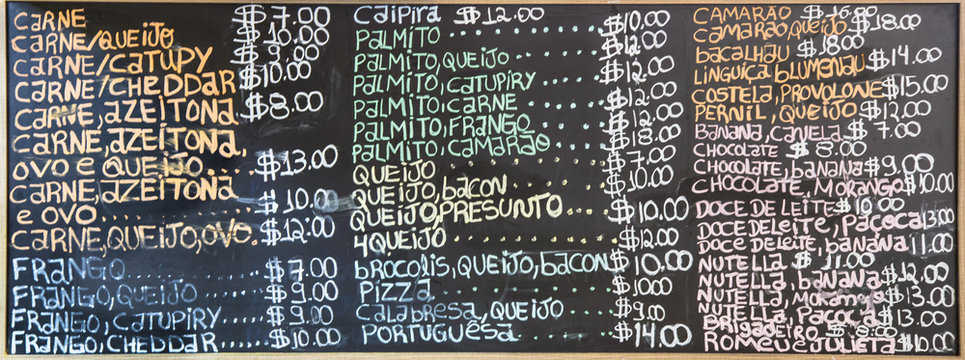 CARNE $7.00
CARNE/QUEIJO $10.00
CARNE/CATUPY $9.00
CARNE/CHEDDAR $10.00
CARNE, AZEITONA $8.00
CARNE, AZEITONA,
OVO e QUEIJO... $13.00
CARNE, AZEITONA
e OVO.......... $10.00
CARNE, QUEIJO, OVO. $12.00
FRANGO......... $7.00
FRANGO, QUEIJO...... $9.00
FRANGO, CATUPIRY..... $9.00
FRANGO, CHEDDAR..... $10.00
CAIPIRA $12.00
PALMITO........ $10.00
PALMITO, QUEIJO..... $12.00
PALMITO, CATUPIRY... $12.00
PALMITO, CARNE..... $12.00
PALMITO, FRANGO..... $12.00
PALMITO, CAMARÃO... $18.00
QUEIJO......... $7.00
QUEIJO, BACON...... $10.00
QUEIJO, PRESUNTO.... $10.00
4 QUEIJO......... $12.00
BROCOLIS, QUEIJO, BACON $10.00
PIZZA.......... $10.00
CALABRESA, QUEIJO.... $9.00
PORTUGUÊSA...... $14.00
CAMARÃO
CAMARÃO, QUEIJO $18.00
BACALHAU $18.00
LINGUIÇA BLUMENAU $14.00
COSTELA, PROVOLONE $15.00
PERNIL, QUEIJO $12.00
BANANA, CANELA $7.00
CHOCOLATE $8.00
CHOCOLATE, BANANA $9.00
CHOCOLATE, MORANGO $10.00
DOCE DE LEITE $10.00
DOCE DE LEITE, PAÇOCA 13.00
DOCE DE LEITE, BANANA 11.00
NUTELLA $11.00
NUTELLA, BANANA $12.00
NUTELLA, MORANGO $13.00
NUTELLA, PAÇOCA $13.00
BRIGADEIRO $8.00
ROMEU E JULIETA $10.00